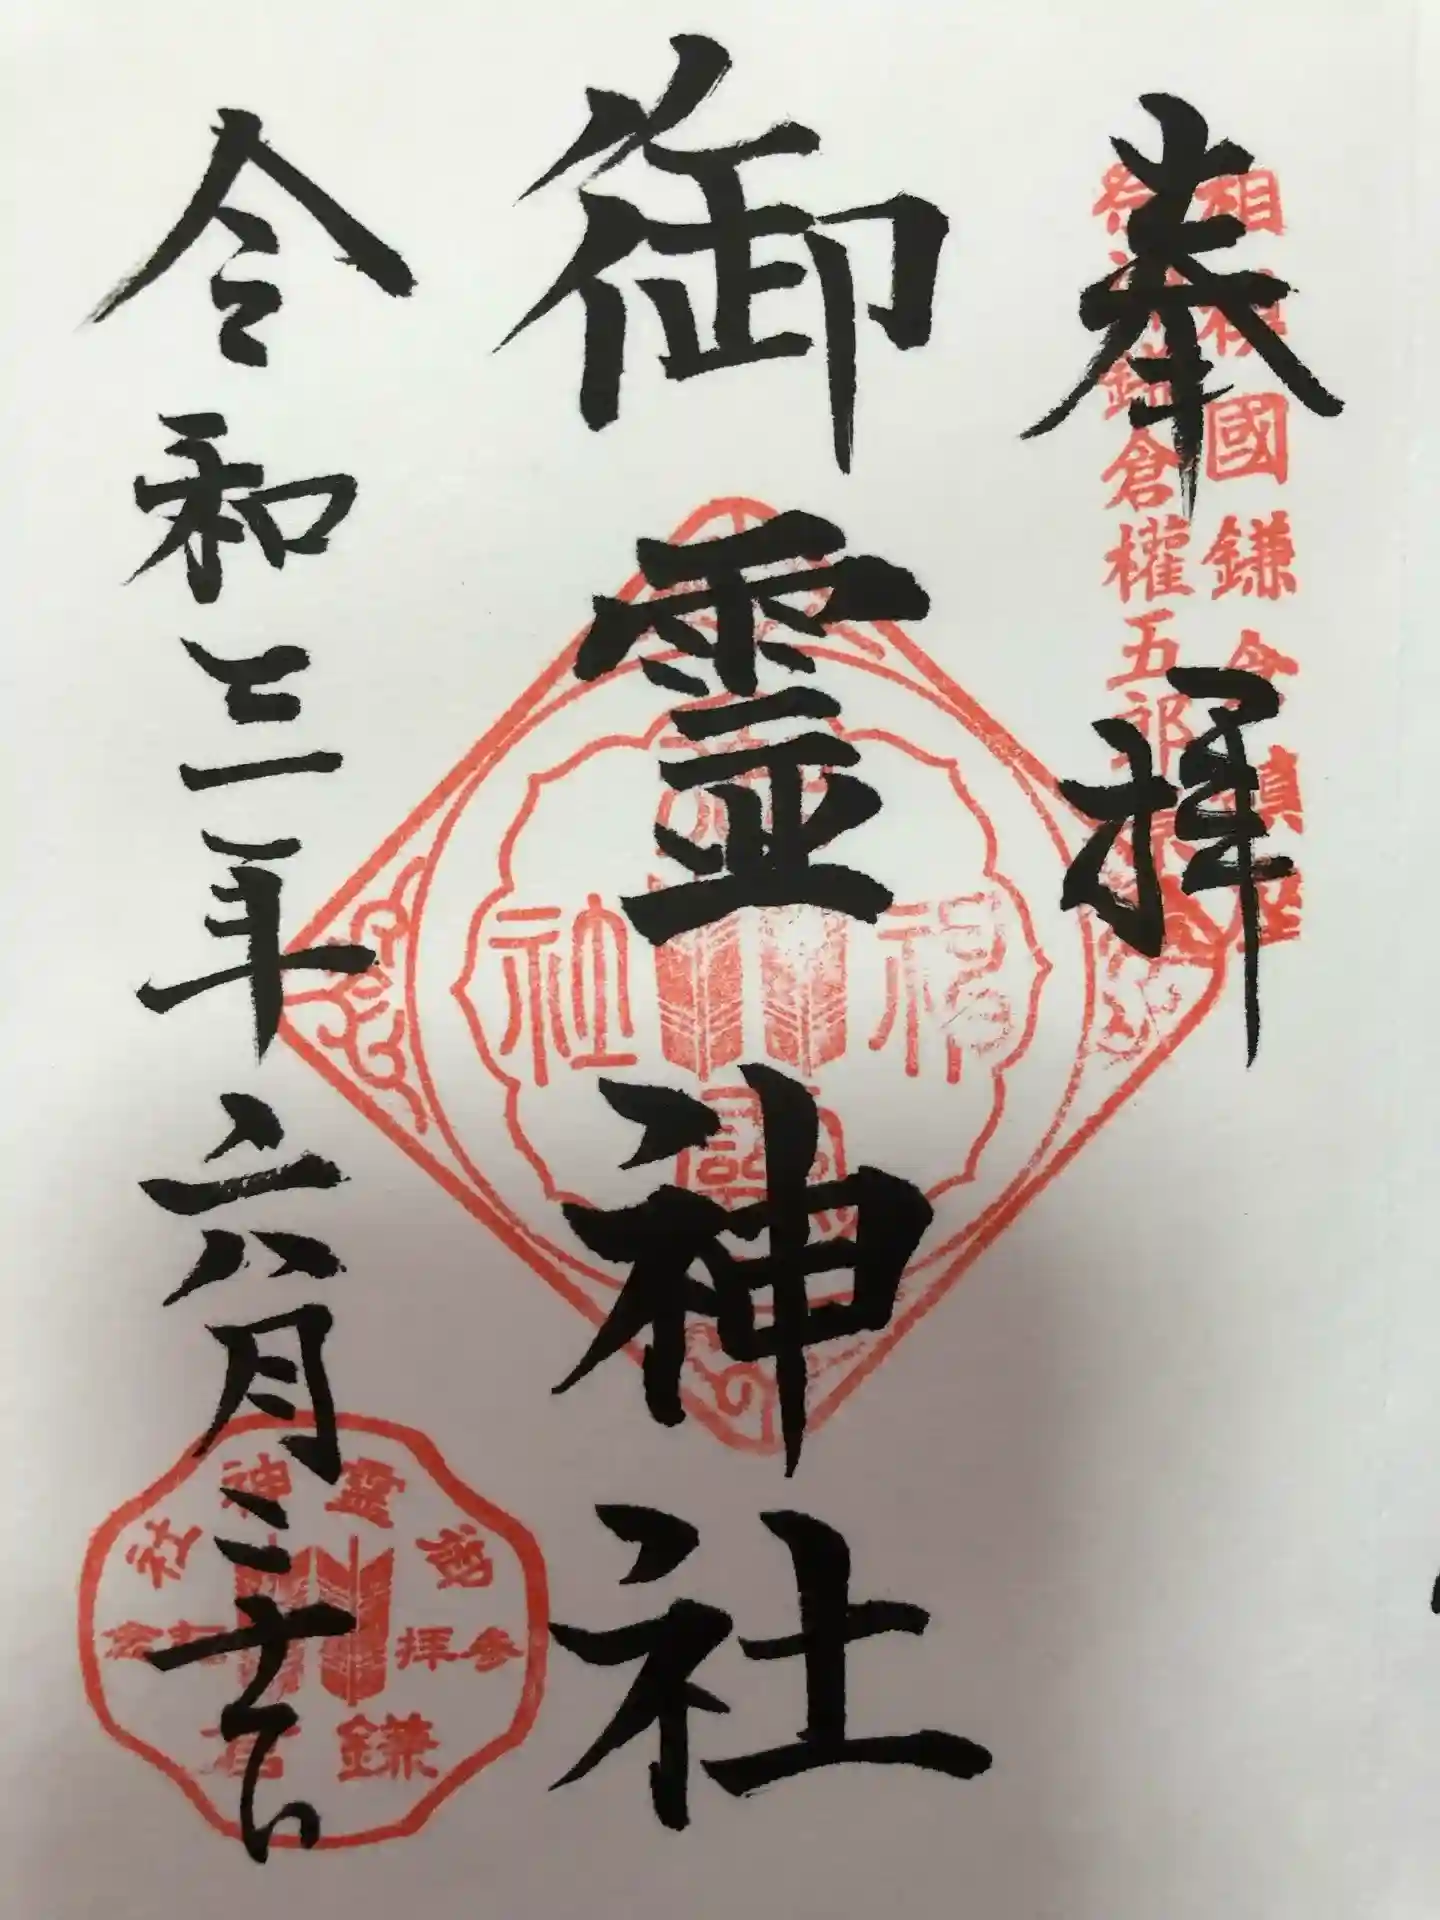 奉拝
相模國鎌倉鎮座
祭神鎌倉權五郎景
御霊神社
令和三年六月三十日
御靈神社
参拝記念
鎌倉